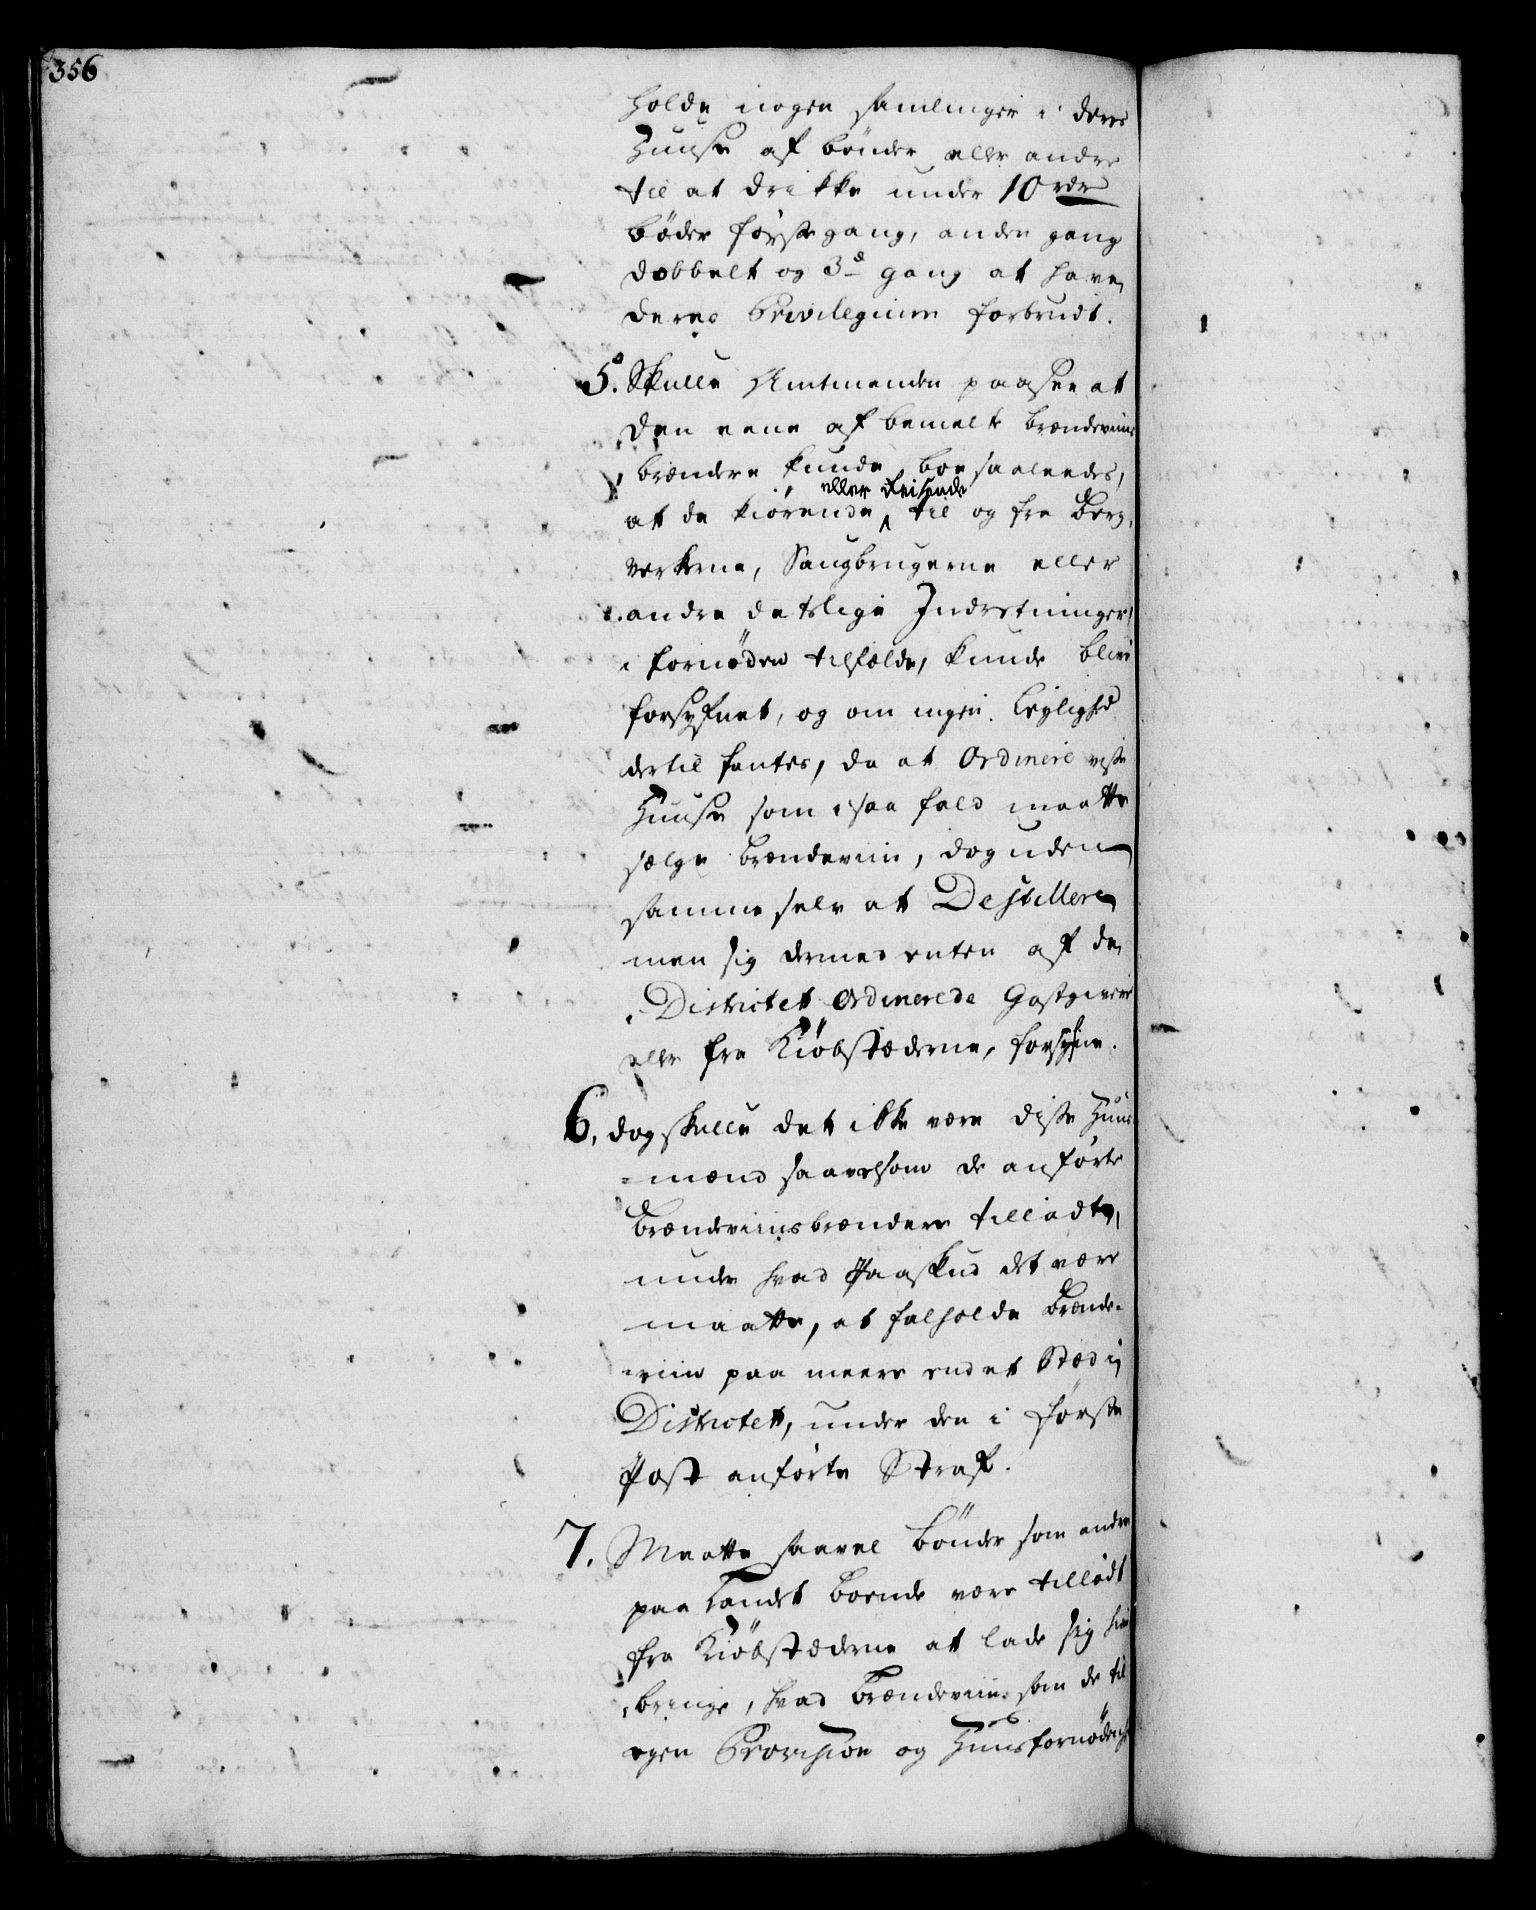 356
holde nogen samlinger i deres
Huuse af bönder eller andre
til at drikke under 10 rdr
böder förste gang, anden gang
dobbelt og 3de gang at have
deres Privilegium forbrudt.
5. Skulle Amtmanden paasee at
den eene af bemelte brændeviins
brændere kunde boe saaledes,
eller Reisende
at de kiörende til og fra Berg-
verkerne, Saugbrugerne eller
andre deslige Indretninger,
i fornöden tilfælde, kunde blive
forsyfnet, og om ingen Leylighed
dertil fantes, da at Ordinere visse
Huuse som i saa fald maatte
sælge brændeviin, dog uden
samme selv at Destillere
men sig dermed enten af de
i Districtet Ordinerede Gæstgivere
eller fra Kiöbstæderne, forsyfne.
6. dog skulle det ikke være disse Huus
-mænd saavelsom de anförte
Brændeviinsbrændere tilladt,
under hvad Paaskud det være
maatte, at falholde Brænde-
viin paa meere end et Stæd i
Districtet, under den i förste
Post anförte Straf.
7. Maatte saavel bönder som andre
paa Landet boende være tilladt
fra Kiöbstæderne at lade sig hen
bringe, hvad Brændeviin som de til
egen Provision og Huusfornödenh